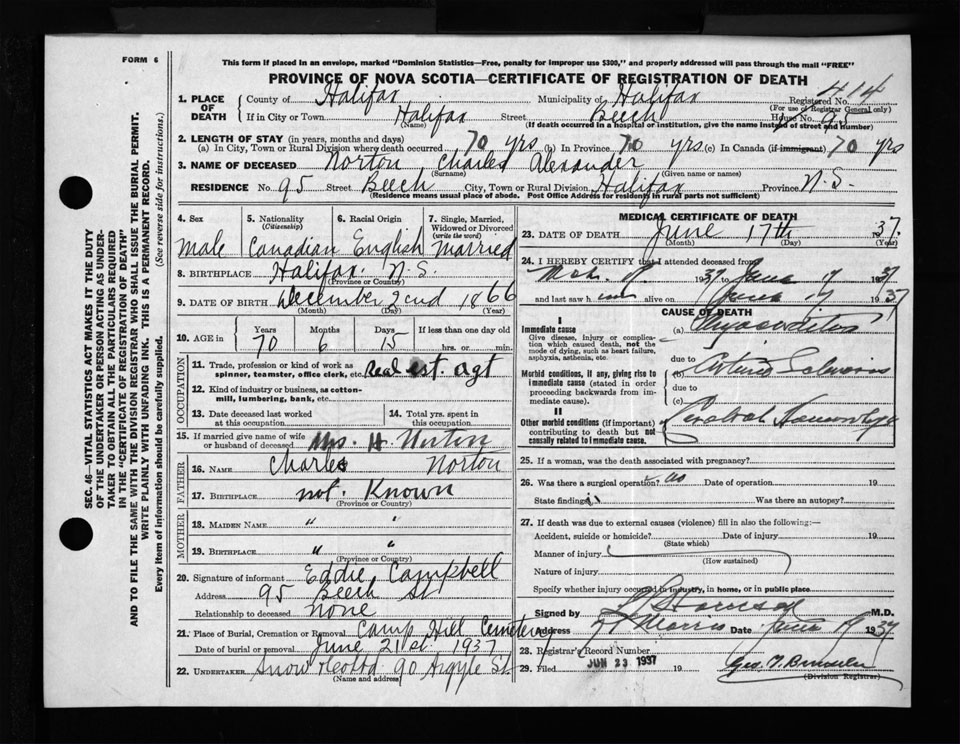 FORM 6
This form if placed in an envelope, marked "Dominion Statistics—Free, penalty for improper use $300," and properly addressed will pass through the mail "FREE"
PROVINCE OF NOVA SCOTIA—CERTIFICATE OF REGISTRATION OF DEATH
SEC. 46—VITAL STATISTICS ACT MAKES IT THE DUTY
OF THE UNDERTAKER OR PERSON ACTING AS UNDER-
TAKER TO OBTAIN ALL THE PARTICULARS REQUIRED
IN THE "CERTIFICATE OF REGISTRATION OF DEATH"
AND TO FILE THE SAME WITH THE DIVISION REGISTRAR WHO SHALL ISSUE THE BURIAL PERMIT.
WRITE PLAINLY WITH UNFADING INK. THIS IS A PERMANENT RECORD.
Every item of information should be carefully supplied. (See reverse side for instructions.)
1. PLACE OF DEATH County of Halifax Municipality of Halifax Registered No. 414
(For use of Registrar General only)
If in City or Town Halifax Street Beech House No. 95
(Name) (If death occurred in a hospital or institution, give the name instead of street and number)
2. LENGTH OF STAY (in years, months and days)
(a) In City, Town or Rural Division where death occurred 70 yrs (b) In Province 70 yrs (c) In Canada (if immigrant) 70 yrs
3. NAME OF DECEASED Norton Charles Alexander
(Surname) (Given name or names)
RESIDENCE No. 95 Street Beech City, Town or Rural Division Halifax Province N.S.
(Residence means usual place of abode. Post Office Address for residents in rural parts not sufficient)
4. Sex Male
5. Nationality (Citizenship) Canadian
6. Racial Origin English
7. Single, Married, Widowed or Divorced (write the word) Married
8. BIRTHPLACE Halifax N.S.
(Province or Country)
9. DATE OF BIRTH December 2nd 1866
(Month) (Day) (Year)
10. AGE in Years 70 Months 6 Days 15 If less than one day old hrs. or min.
OCCUPATION
11. Trade, profession or kind of work as spinner, teamster, office clerk, etc. Real est. agt
12. Kind of industry or business, as cotton-mill, lumbering, bank, etc.
13. Date deceased last worked at this occupation
14. Total yrs. spent in this occupation
15. If married give name of wife or husband of deceased Mrs. H. Norton
FATHER
16. NAME Charles Norton
17. BIRTHPLACE not. Known
(Province or Country)
MOTHER
18. MAIDEN NAME " "
19. BIRTHPLACE " "
(Province or Country)
20. Signature of informant Eddie Campbell
Address 95 Beech St
Relationship to deceased none
21. Place of Burial, Cremation or Removal Camp Hill Cemetery
Date of burial or removal June 21st 1937
22. UNDERTAKER Snow & Co Ltd 90 Argyle St
(Name and address)
MEDICAL CERTIFICATE OF DEATH
23. DATE OF DEATH June 17th 37.
(Month) (Day) (Year)
24. I HEREBY CERTIFY that I attended deceased from
1937 June 17 1937
and last saw him alive on June 17 1937
CAUSE OF DEATH
I
Immediate cause
Give disease, injury or complication which caused death, not the mode of dying, such as heart failure, asphyxia, asthenia, etc.
(a) Myocarditis
due to
Morbid conditions, if any, giving rise to immediate cause (stated in order proceeding backwards from immediate cause).
(b) Arterio Sclerosis
due to
(c)
II
Other morbid conditions (if important) contributing to death but not causally related to immediate cause.
Cerebral Hemorrhage
25. If a woman, was the death associated with pregnancy?
26. Was there a surgical operation? no Date of operation 19
State findings Was there an autopsy?
27. If death was due to external causes (violence) fill in also the following:—
Accident, suicide or homicide? Date of injury 19
(State which)
Manner of injury
(How sustained)
Nature of injury
Specify whether injury occurred in industry, in home, or in public place
Signed by M.D.
Address Morris Date June 19 1937
28. Registrar's Record Number
29. Filed JUN 23 1937 19
(Division Registrar)